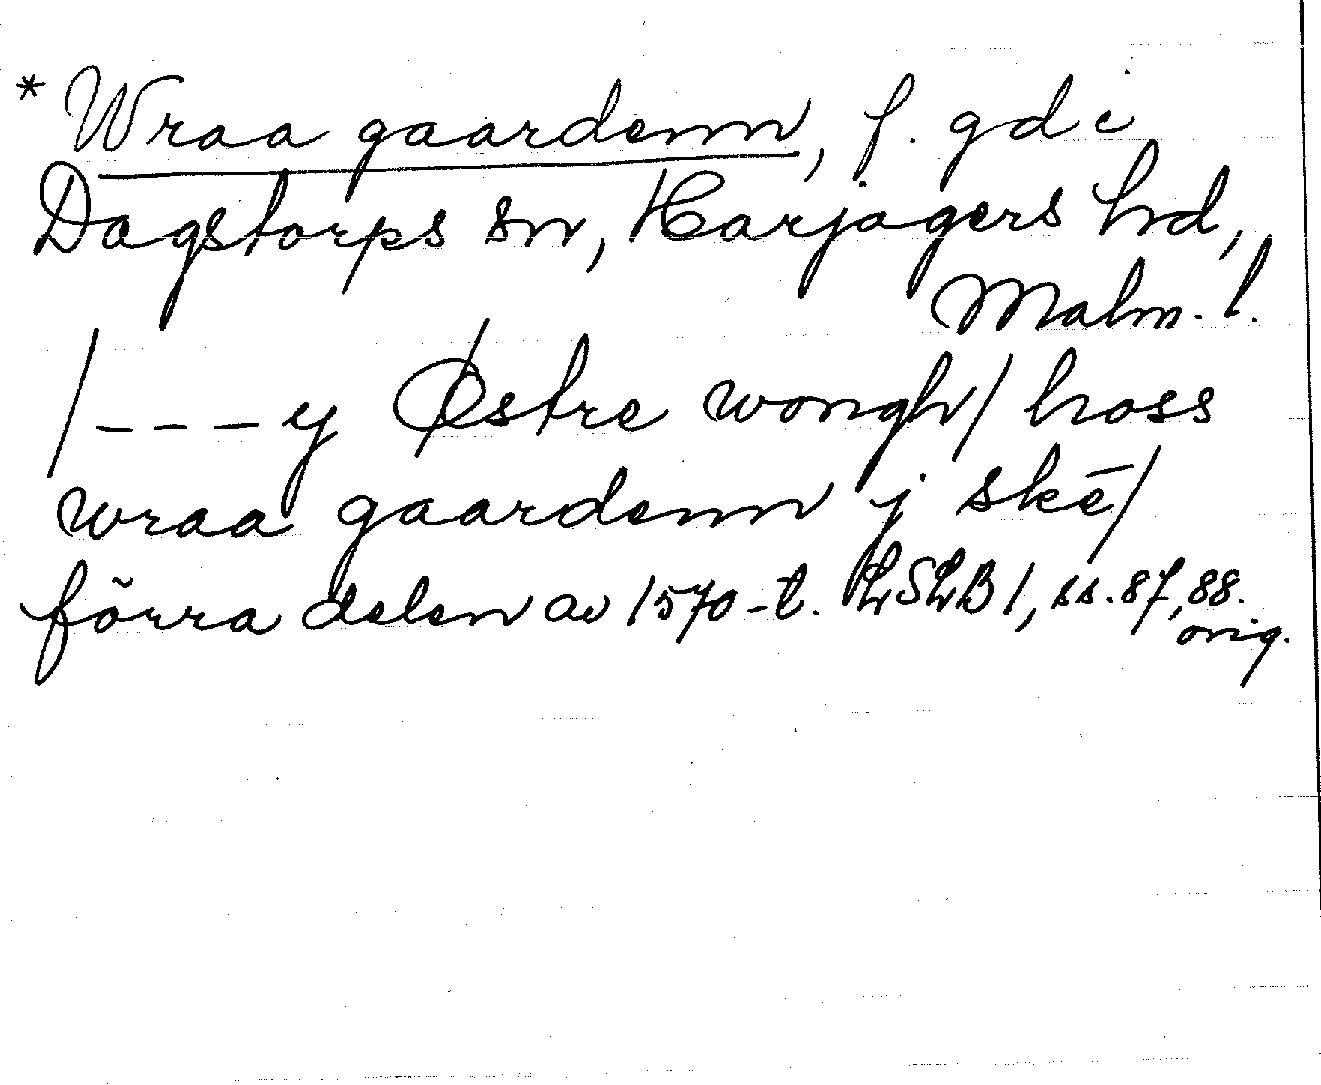 * Wraa gaardenn, f. gd i
Dagstorps sn, Harjagers hd,
Malm. l.
/---y Østre wongh/ hoss
wraa gaardenn j skē/
förra delen av 1570-t. LSLB 1, ss. 87, 88.
orig.